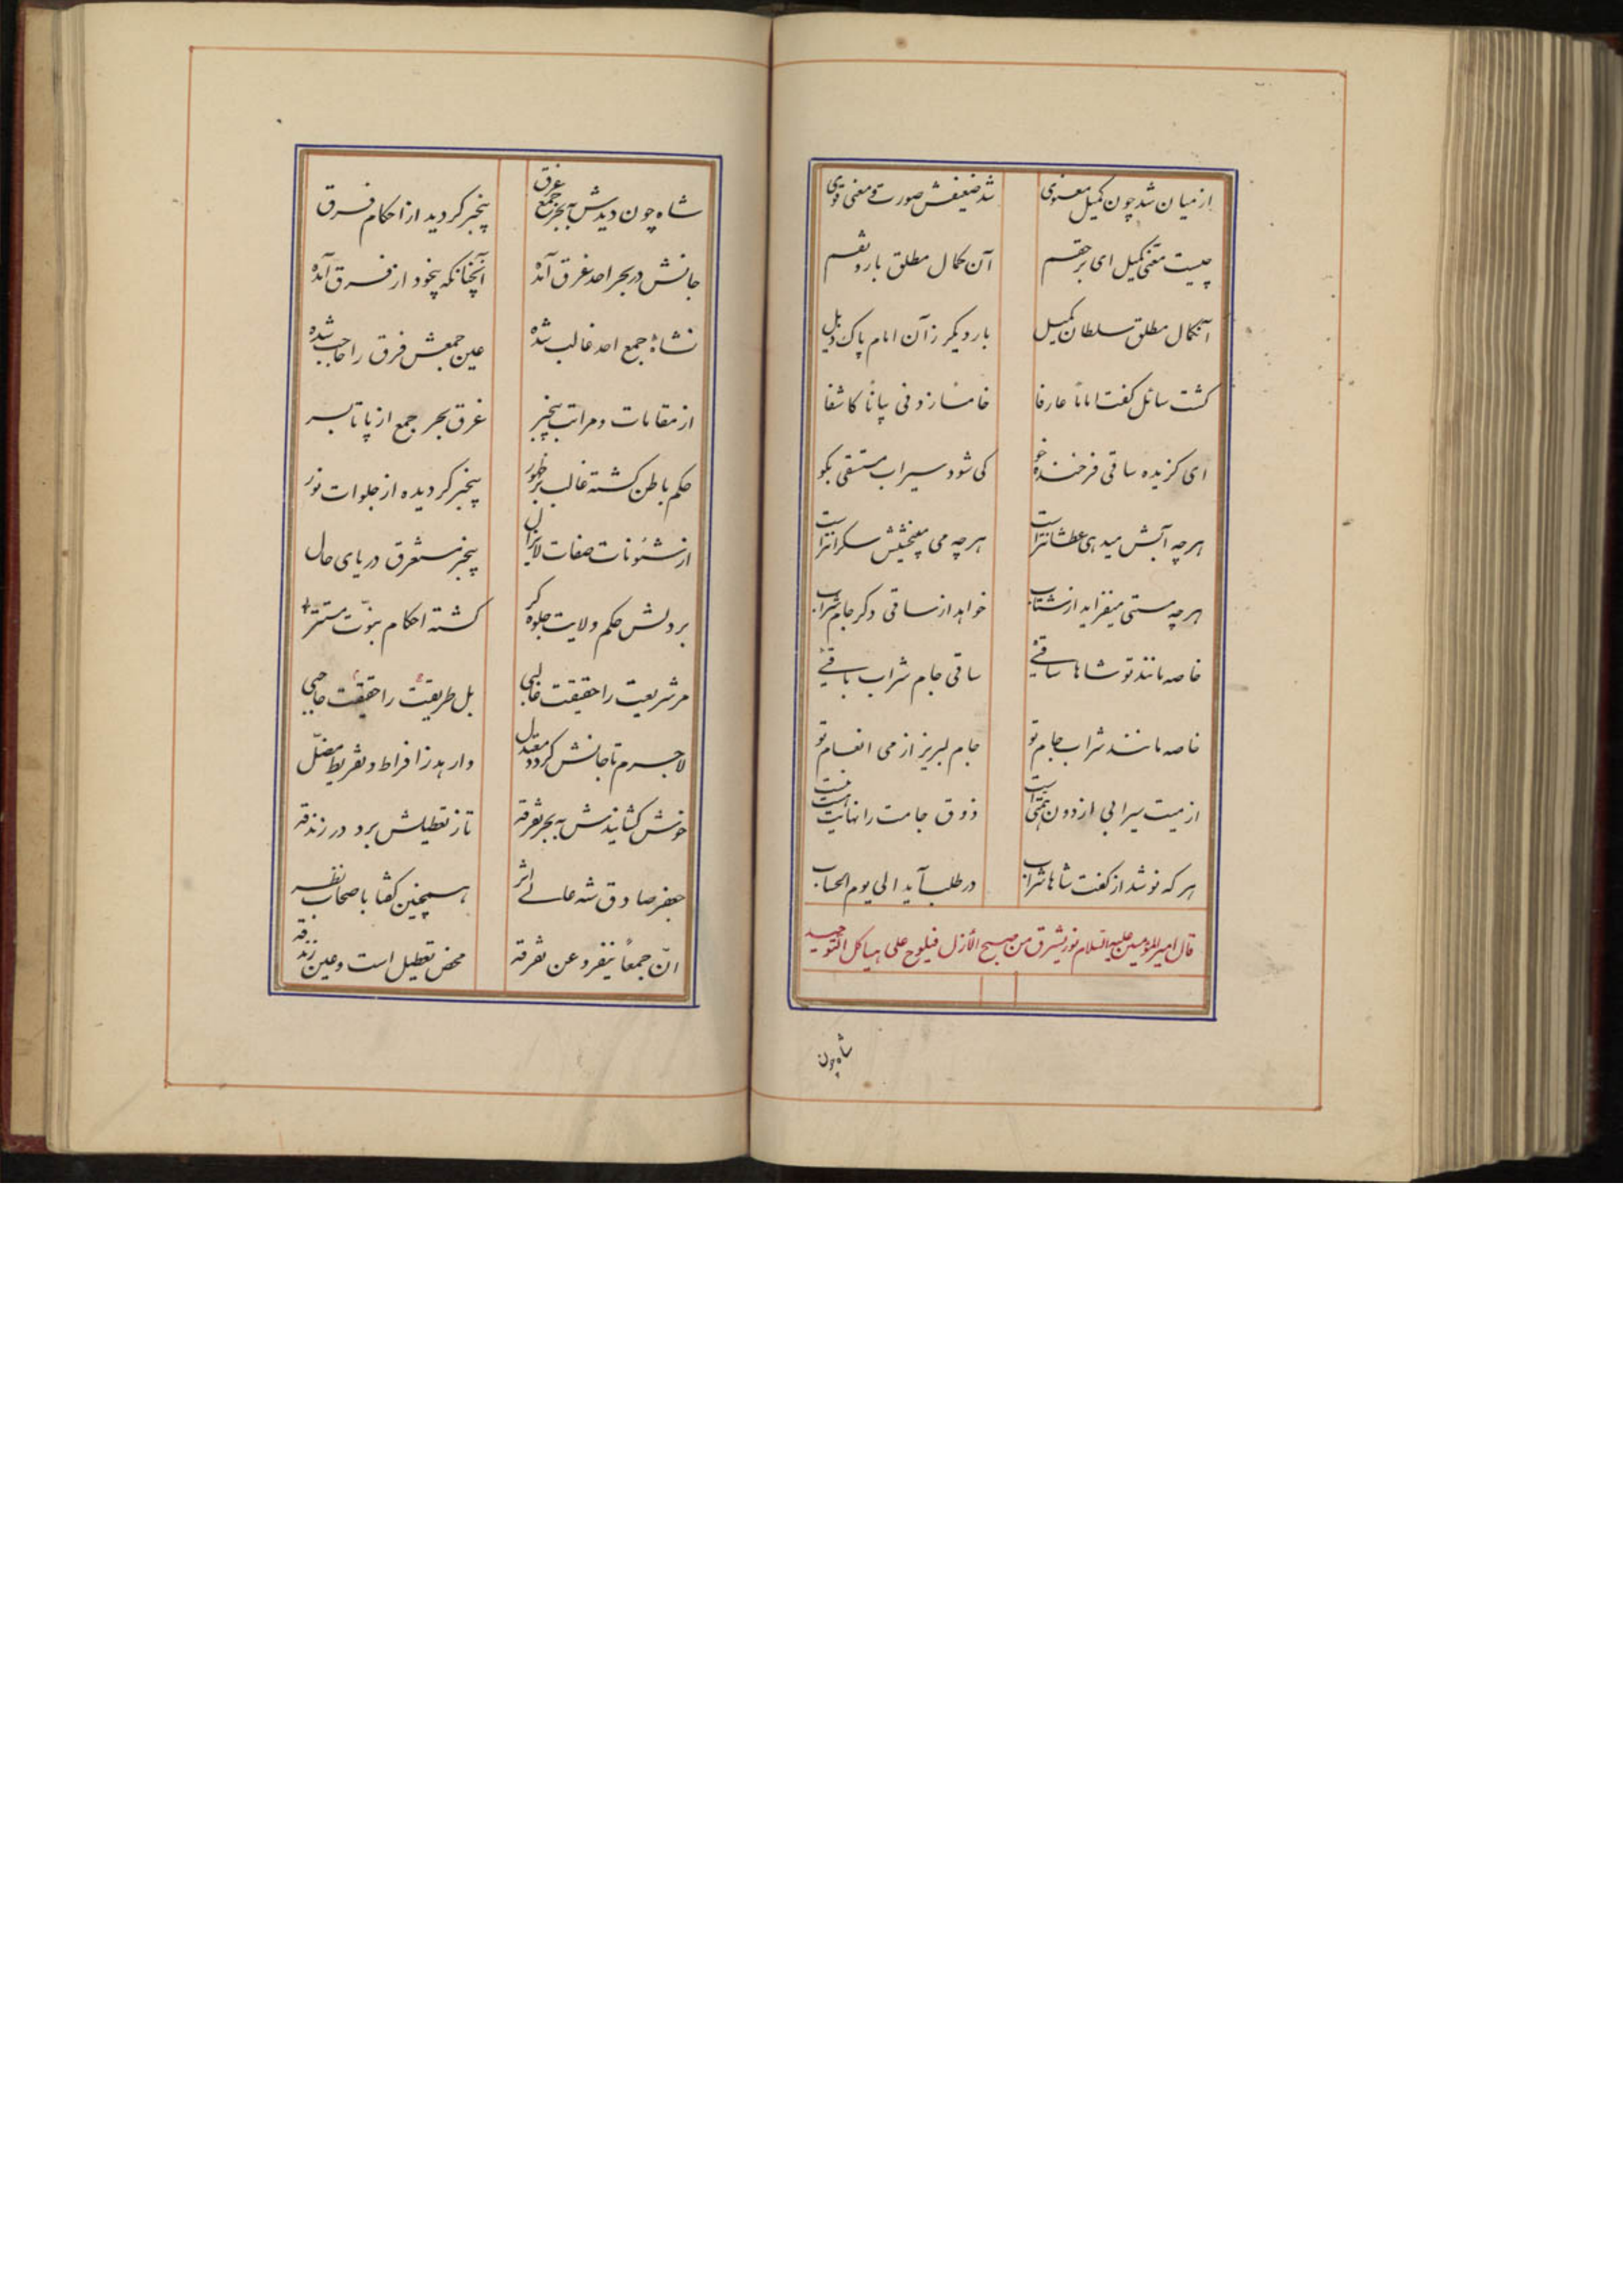 از میان شد چون کمیل معنوی شد ضعیفش صورت و معنی قوی
چیست معنی کمیل ای برحقم آن کمال مطلق بارونقم
آنکمال مطلق سلطان کمیل بار دیکر زآن امام پاک ذیل
کشت سائل کفت اماماً عارفا خامساً زدنی بیاناً کاشفا
ای کزیده ساقی فرخنده خو کی شود سیراب مستسقی بکو
هرچه آبش میدهی عطشانتر است هرچه می میبخشیش سکرانتر است
هرچه مستی میفزاید از شتاب خواهد از ساقی دکر جام شراب
خاصه مانند تو شاها ساقئی ساقی جام شراب باقئی
خاصه مانند شراب جام تو جام لبریز از می انعام تو
از میت سیرابی از دون همتی است ذوق جامت را نهایت نیست
هر که نوشد از کفت شاها شراب در طلب آید الی یوم الحساب
قال امیرالمؤمنین علیه السلام نور یشرق من صبح الأزل فیلوح علی هیاکل التوحید
شاه چون
شاه چون دیدش به بحر جمع غرق بیخبر کردید از احکام فرق
جانش در بحر احد غرق آمده آنچنانکه بیخود از فرق آمده
نشاهٔ جمع احد غالب شده عین جمعش فرق را حاجب شده
از مقامات و مراتب بیخبر غرق بحر جمع از پا تا بسر
حکم باطن کشته غالب بر ظهور بیخبر کردیده از جلوات نور
از شئونات صفات لایزال بیخبر مستغرق دریای حال
بر دلش حکم ولایت جلوه کر کشته احکام نبوّت مستتر
مر شریعت را حقیقت غالبی بل طریقت را حقیقت حاجبی
لاجرم تا جانش کردد معتدل وارهد ز افراط و تفریط مضلّ
خوش کشانیدش به بحر تفرقه تا ز تعطیلش برد در زندقه
جعفر صادق شه عالی اثر همچنین کفتا باصحاب نظر
انّ جمعاً ینفرد عن تفرقه محض تعطیل است و عین زندقه